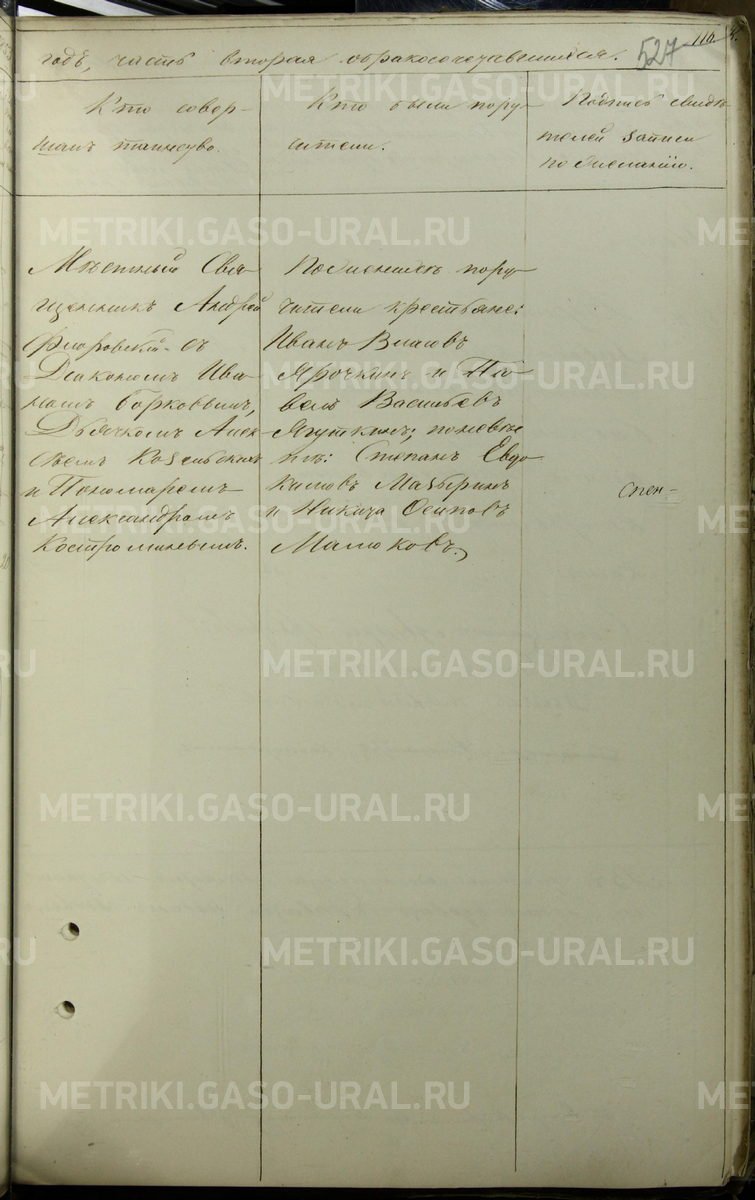 годъ, часть вторая о бракосочетавшихся.
527
116.
Кто совер-
шалъ таинство.
Кто были пору-
чители.
Подпись свидѣ-
телей записи
по желанію.
Мѣстный Свя-
щенникъ Андрей
Флоровскій съ
Діакономъ Ива-
номъ Борковымъ,
Дьячкомъ Алек-
сѣемъ
и Пономаремъ
Александромъ
Костроминымъ.
По женихѣ пору-
чители крестьяне:
Иванъ Власовъ
Ярочкинъ и Па-
велъ Васильевъ
Ягуткинъ; по невѣс-
тѣ: Степанъ Евдо-
кимовъ Мазыринъ
и Никита Осиповъ
Малюковъ.
METRIKI.GASO-URAL.RU